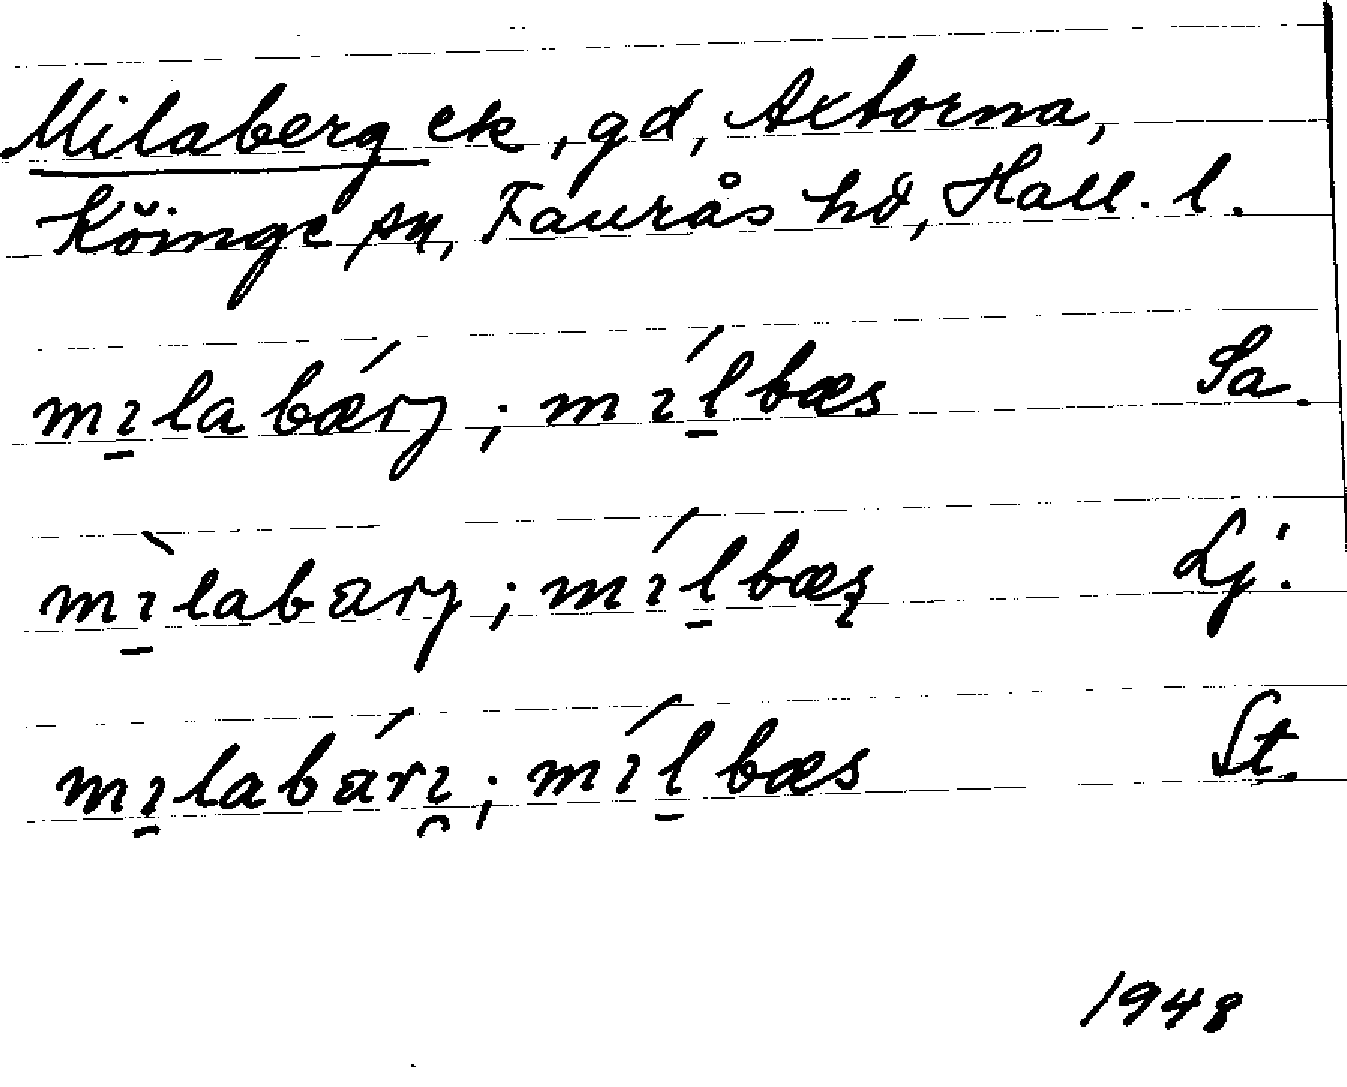 Milaberg ek, gd, Axtorna,
Köinge sn, Faurås hd, Hall. l.
mı̱labǽrj; mı́ḻbæs Sa.
mı̱̀labærj; mı́ḻbæs Lj.
mı̱labǽrı̯; mı́ḻbæs St.
1948